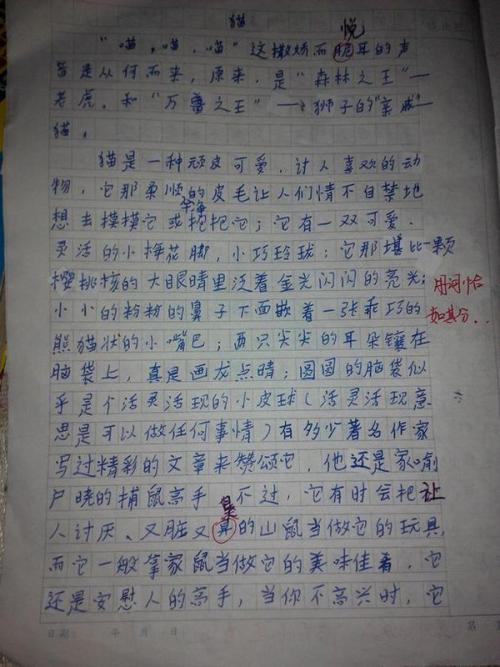 猫
悦
“喵，喵，喵”这撒娇而脱耳的声
音是从何而来，原来，是“森林之王”—
老虎，和“万兽之王”——狮子的“亲戚”—
猫。
猫是一种顽皮可爱，讨人喜欢的动
物，它那柔顺的皮毛让人们情不自禁地
想去摸摸它或抱抱它；它有一双可爱、
灵活的小梅花脚，小巧玲珑；它那堪比一颗
樱桃核的大眼睛里泛着金光闪闪的亮光；
用词恰
如其分..
小小的粉粉的鼻子下面嵌着一张乖巧的
熊猫状的小嘴巴；两只尖尖的耳朵镶在
脑袋上，真是画龙点睛；圆圆的脑袋似
乎是个活灵活现的小皮球（活灵活现意
思是可以做任何事情）有多少著名作家
写过精彩的文章来赞颂它，他还是家喻
户晓的捕鼠高手 不过，它有时会把让
臭
人讨厌、又脏又臭的山鼠当做它的玩具，
而它一般拿家鼠当做它的美味佳肴，它
还是安慰人的高手，当你不高兴时，它
日期： 年 月 日